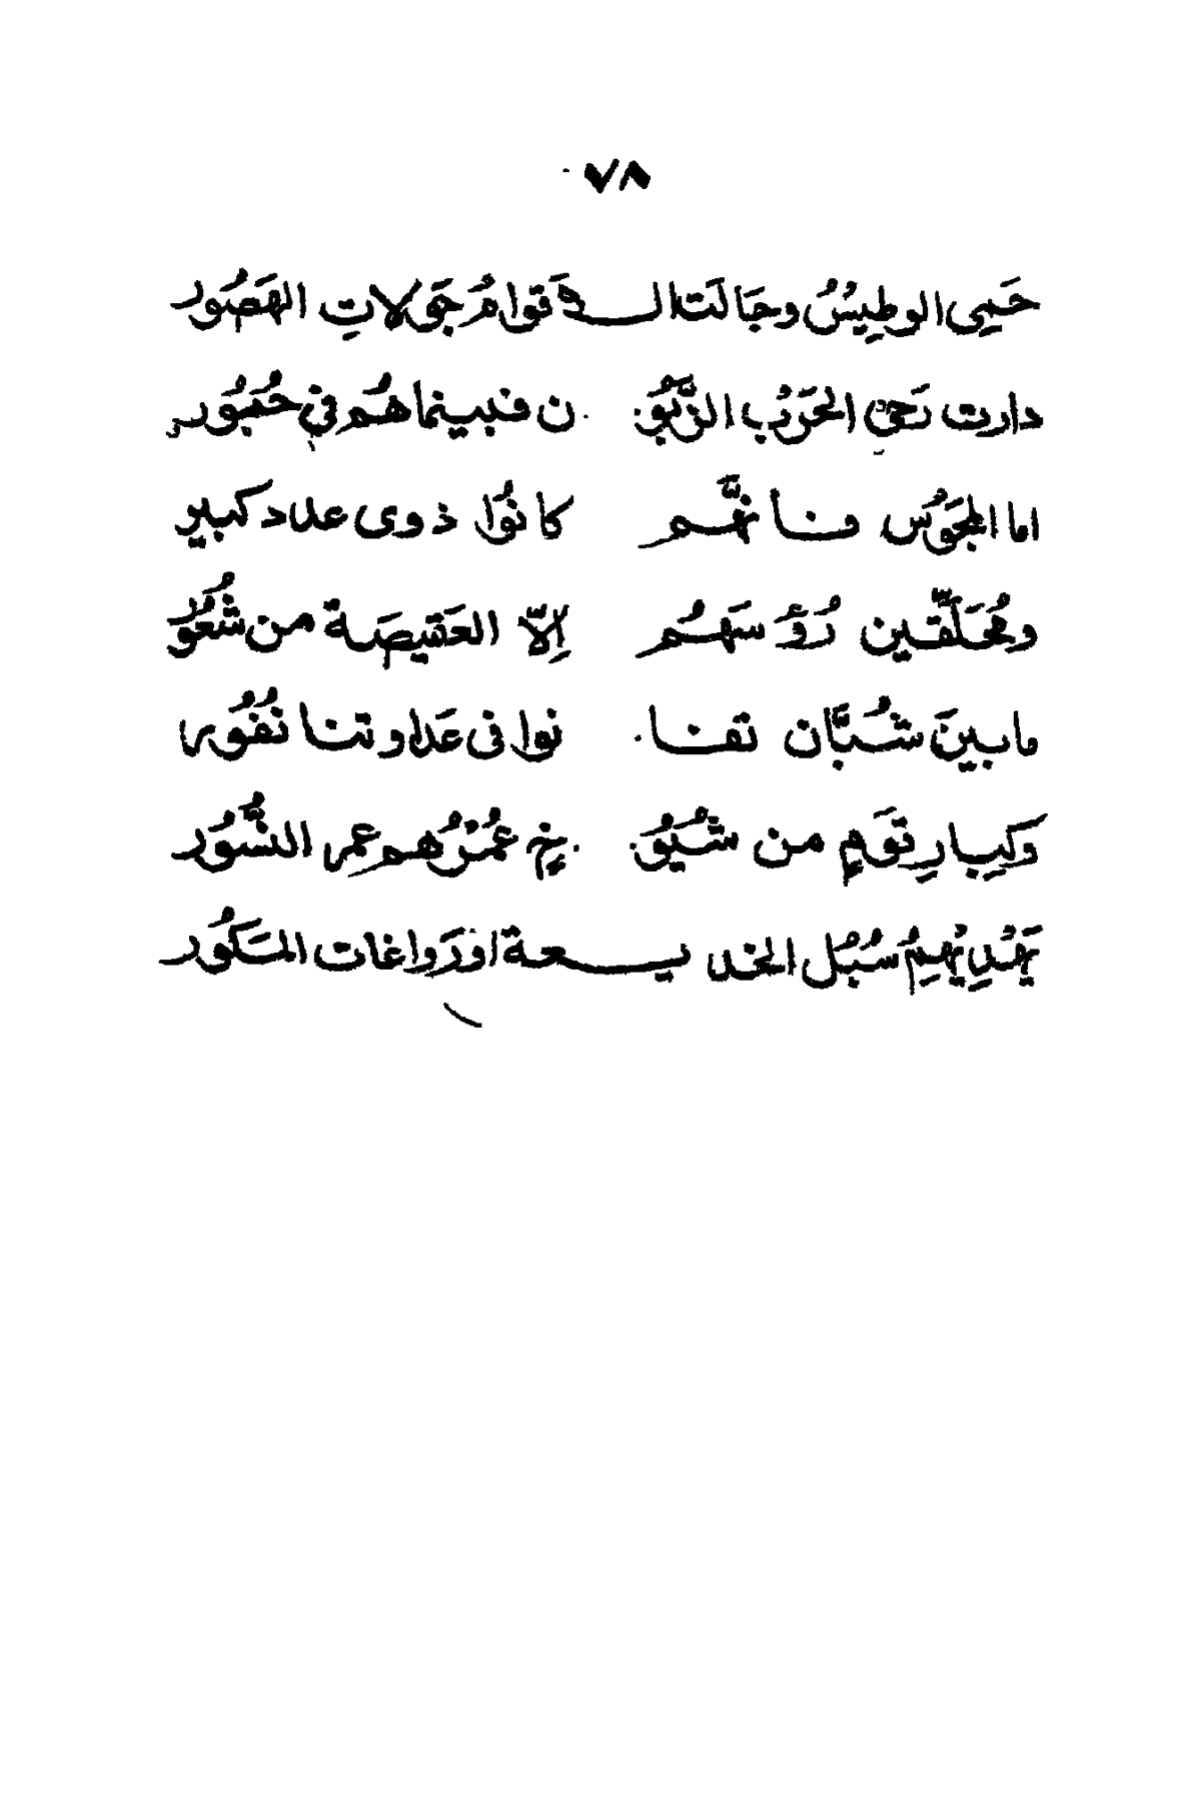 ٧٨
حَمِيَ الوطِيسُ وجَالَتْ الـأَقوامُ جَوَلاتِ الهَصُور
دارت رَحىَ الحَرْبِ الزَّبُو ن فبينما هُم في حُبُور
اما المجُوَس فانهَّم كانوُا ذوى عداد كبير
ومُحَلَّقين رُؤسَهُم إِلاّ العَقيصَة من شُعُوُر
ما بينَ شُبَّان تفا نوا فى عَداوتنا نُفُورا
وَكِبارِ قَوَمٍ من شُيُو خٍ عُمْرُهم عمر النُّسُور
يَهْدِيْهِمُ سُبُل الخديـعة او رَواغات المَكُور